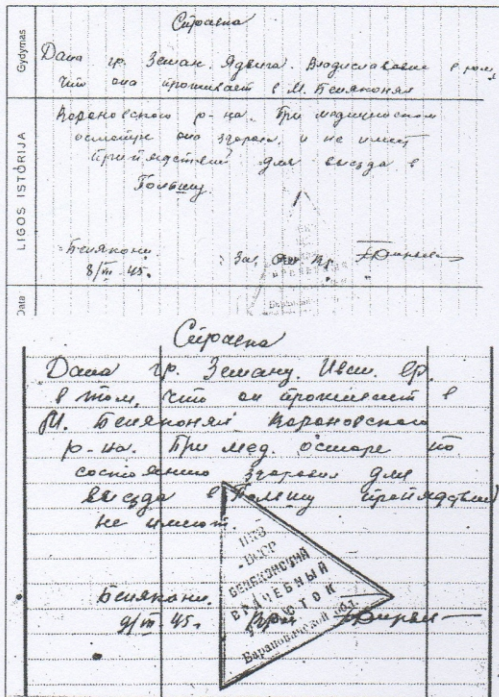 Gydymas
LIGOS ISTORIJA
Data
Справка
Дана гр. Земан. Ядвига. Владиславовне в том,
что она проживает в М. Беняконях
Вороновского р-на. При медицинском
осмотре она здорова и не имеет
препятствий для выезда в
Польшу.
Бенякони
8/III-45.
За.
Справка
Дана гр. Земану. Иван.
в том, что он проживает в
М. Беняконях Вороновского
р-на. При мед. осмотре по
состоянию здоровья для
выезда в Польшу препятствий
не имеют.
НКЗ
БССР
БЕНЯКОНСКИЙ
ВРАЧЕБНЫЙ
УЧАСТОК
Барановичской обл.
Бенякони.
9/III-45.
Врач